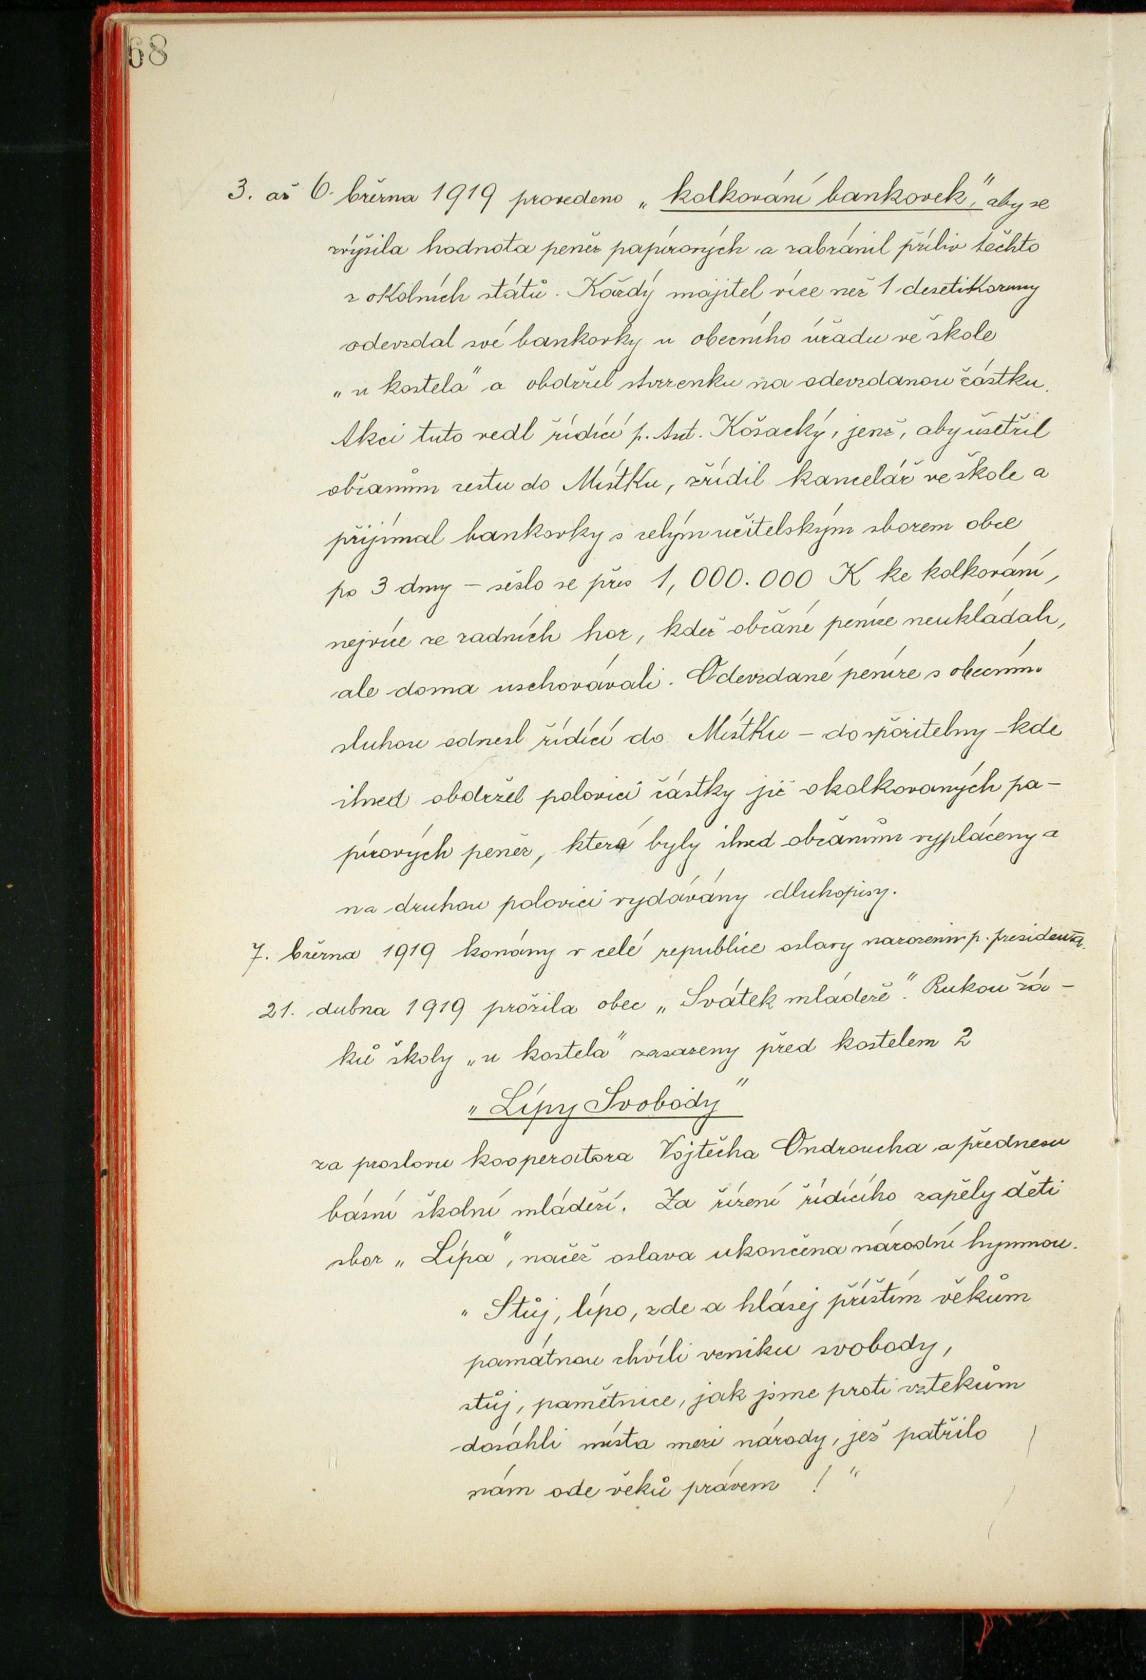 68
3. až 6. března 1919 provedeno „kolkování bankovek", aby se
zvýšila hodnota peněz papírových a zabránil příliv těchto
z okolních států. Každý majitel více než 1 desetikoruny
odevzdal své bankovky u obecního úřadu ve škole
„u kostela" a obdržel stvrzenku na odevzdanou částku.
Akci tuto vedl řídící p. Ant. Košacký, jenž, aby ušetřil
občanům cestu do Místku, zřídil kancelář ve škole a
přijímal bankovky s celým učitelským sborem obce
po 3 dny – sešlo se přes 1,000.000 K ke kolkování,
nejvíce ze zadních hor, kdež občané peníze neukládali,
ale doma uschovávali. Odevzdané peníze s obecním
sluhou odnesl řídící do Místku – do spořitelny – kde
ihned obdržel polovici částky již okolkovaných pa-
pírových peněz, která byly ihned občanům vypláceny a
na druhou polovici vydávány dluhopisy.
7. března 1919 konány v celé republice oslavy narozenin p. presidenta.
21. dubna 1919 prožila obec „Svátek mládeže". Rukou žá-
ků školy „u kostela" zasazeny před kostelem 2
„Lípy Svobody"
za proslovu kooperatora Vojtěcha Ondroucha a přednesu
básní školní mládeží. Za řízení řídícího zapěly děti
sbor „Lípa", načež oslava ukončena národní hymnou.
„Stůj, lípo, zde a hlásej příštím věkům
památnou chvíli vzniku svobody,
stůj, pamětnice, jak jsme proti vztekům
dosáhli místa mezi národy, jež patřilo
nám ode věků právem !"